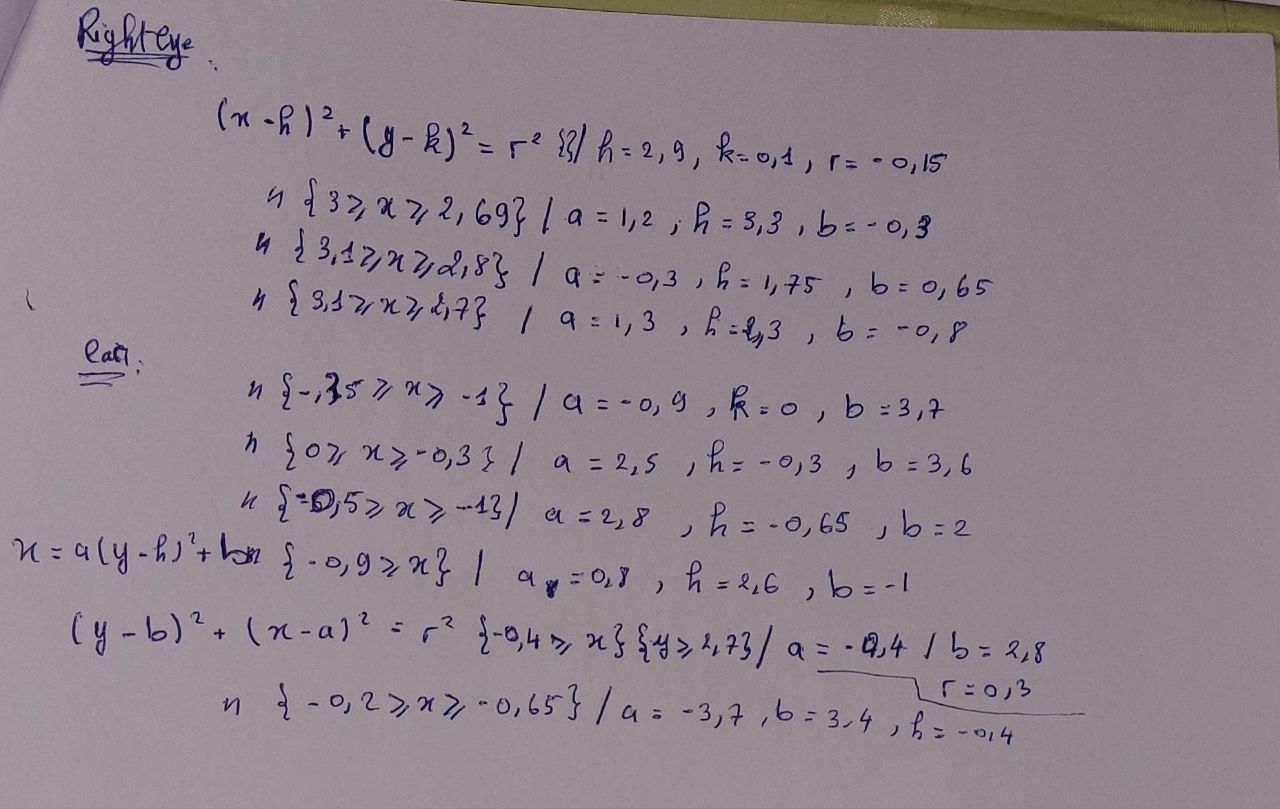 Right eye.
(x-h)² + (y-k)² = r² {}/ h=2,9, k=0,1, r=-0,15
" {3⩾x⩾2,69} / a=1,2, h=3,3, b=-0,3
" {3,1⩾x⩾2,8} / a=-0,3, h=1,75, b=0,65
" {3,1⩾x⩾2,7} / a=1,3, h=2,3, b=-0,8
:
" {-,35⩾x⩾-1} / a=-0,9, k=0, b=3,7
" {0⩾x⩾-0,3} / a=2,5, h=-0,3, b=3,6
" {-0,5⩾x⩾-1} / a=2,8, h=-0,65, b=2
x=a(y-h)²+b {-0,9⩾x} / a=0,8, h=2,6, b=-1
(y-b)² + (x-a)² = r² {-0,4⩾x}{y⩾2,7} / a=-0,4 / b=2,8
r=0,3
" {-0,2⩾x⩾-0,65} / a=-3,7, b=3,4, h=-0,4